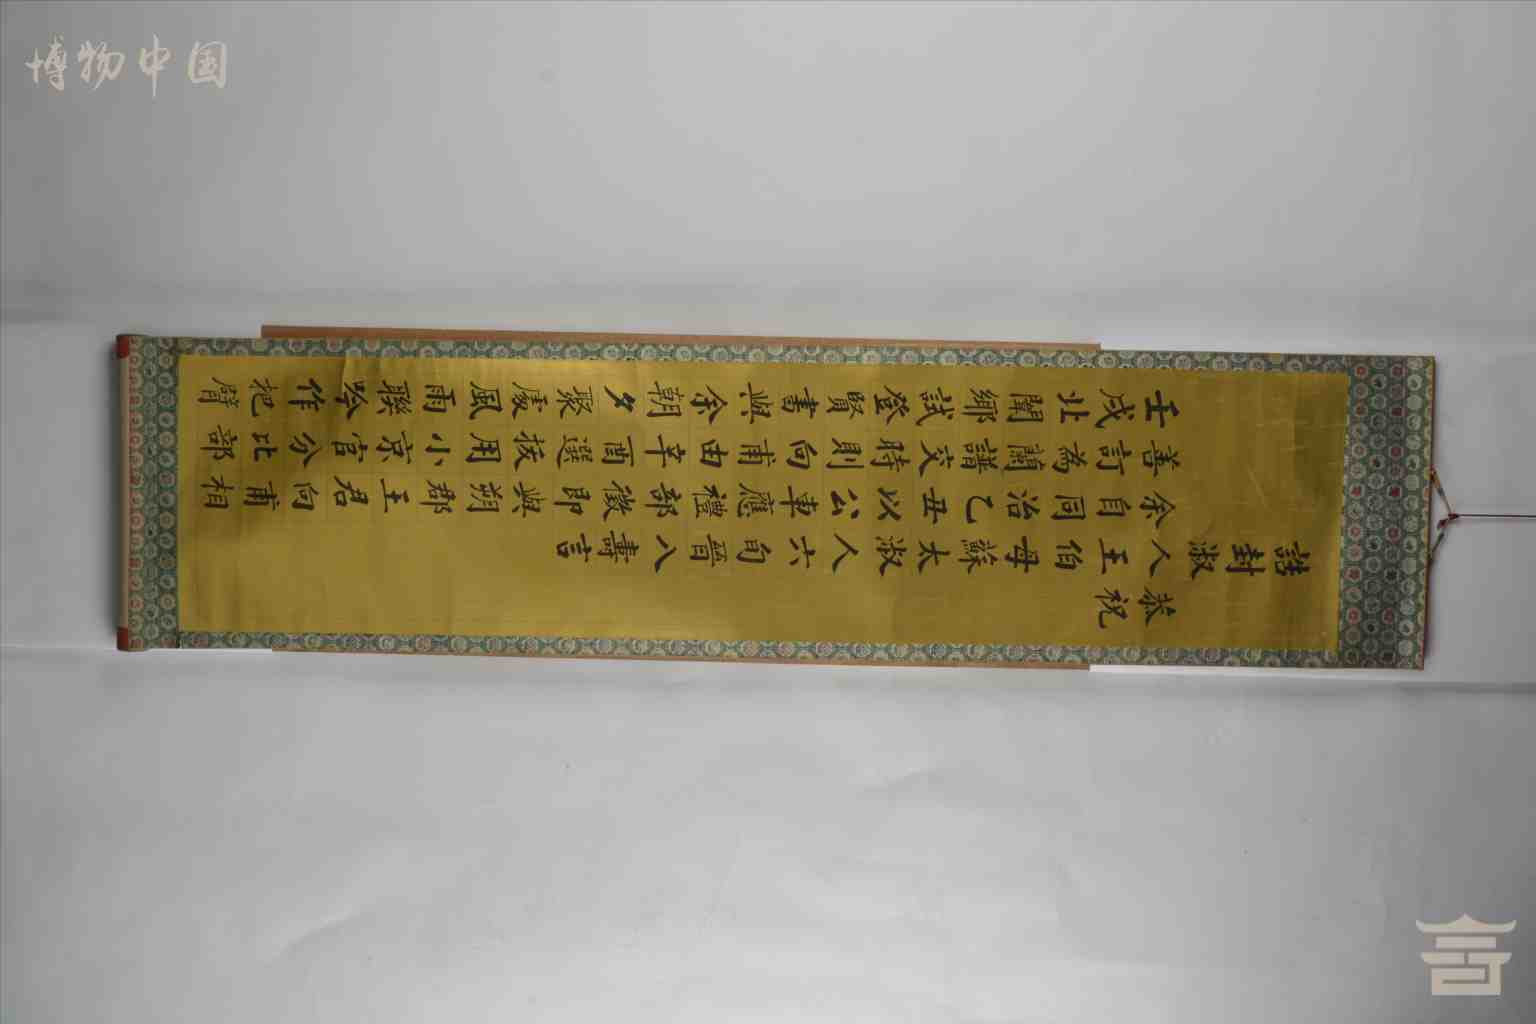 恭祝
誥封淑人王伯母蘇太淑人六旬晉八壽言
余自同治乙丑以公車應禮部徵即與朔郡王君向甫相
善訂為蘭譜交時則向甫由辛酉選拔用小京官分比部
壬戌北闈鄉試登賢書與余朝夕聚處風雨聯吟作把臂
博物中国